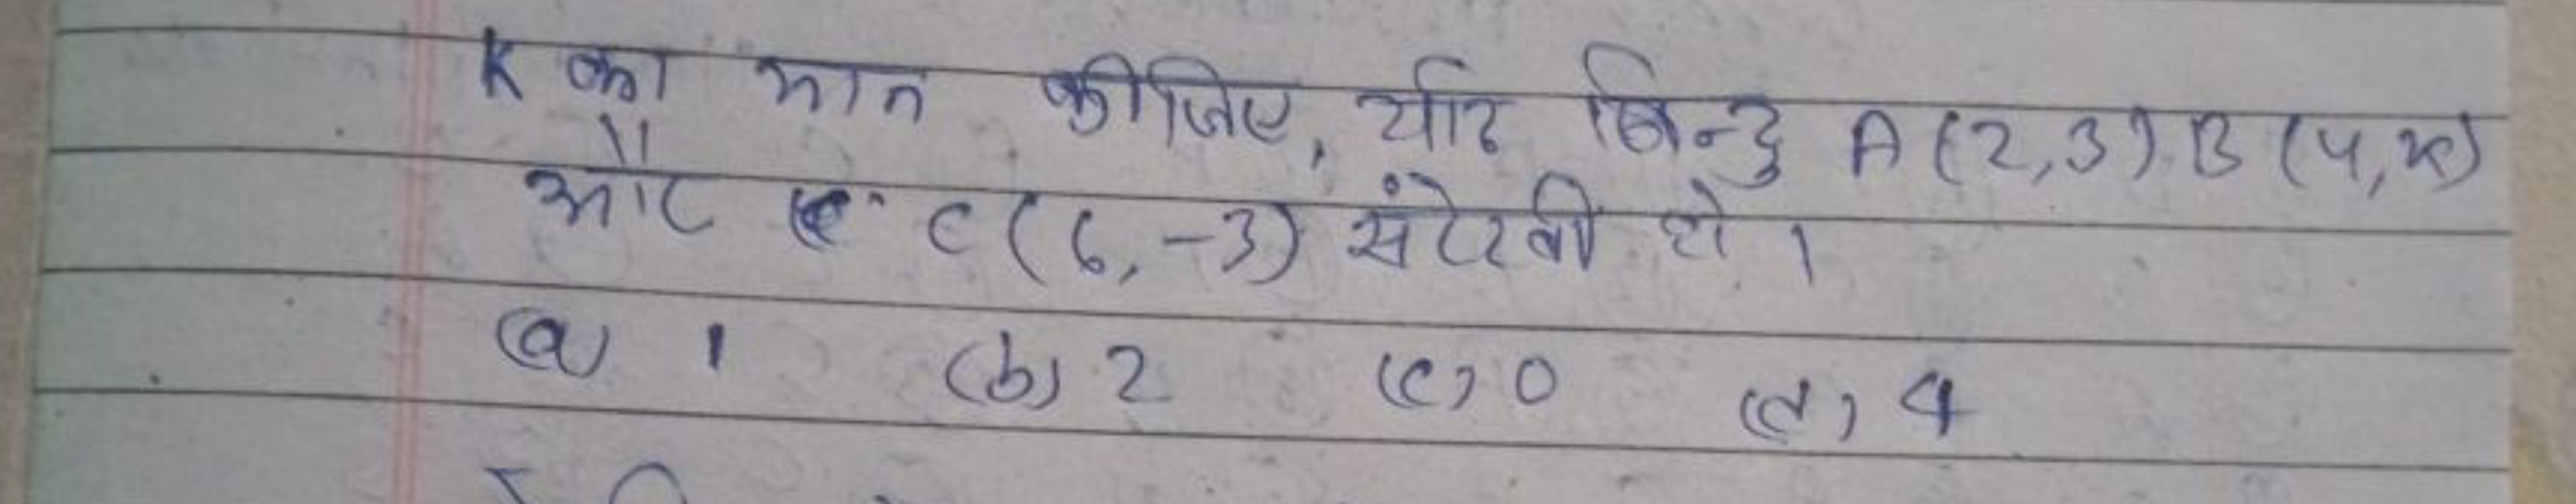 K का मान कीजिए, यदि बिन्दु A (2,3) B (4,k)
और C (6,-3) संरेखी हो ।
(a) 1 (b) 2 (c) 0 (d) 4